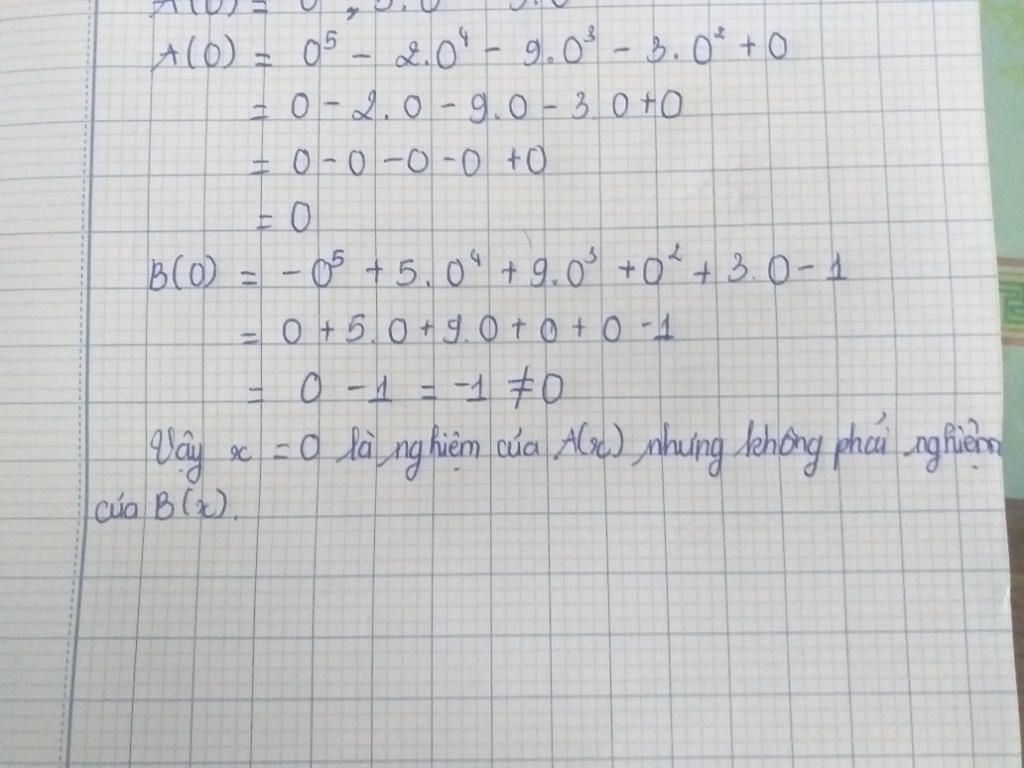 A(0) = 0⁵ - 2.0⁴ - 9.0³ - 3.0² + 0
= 0 - 2.0 - 9.0 - 3.0 + 0
= 0 - 0 - 0 - 0 + 0
= 0
B(0) = - 0⁵ + 5.0⁴ + 9.0³ + 0² + 3.0 - 1
= 0 + 5.0 + 9.0 + 0 + 0 - 1
= 0 - 1 = -1 ≠ 0
Vậy x = 0 là nghiệm của A(x) nhưng không phải nghiệm
của B(x).